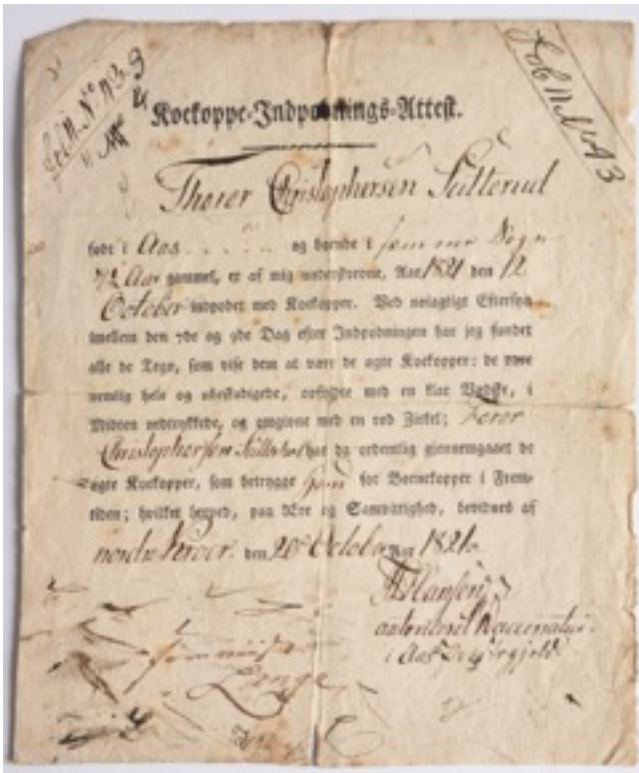 Fol. N. No 13.
Kockoppe-Indpodnings-Attest.
Thorer Christophersen Sutterud
født i Aas og boende i samme Sogn
1/2 Aar gammel, er af mig underskrevne, Aar 1821 den 12
October indpodet med Kockopper. Ved nøiagtigt Eftersyn
imellem den 7de og 9de Dag efter Indpodningen har jeg fundet
alle de Tegn, som vise dem at være de ægte Kockopper: de vare
nemlig hele og ubeskadigede, opfyldte med en klar Vædske, i
Midten nedtrykkede, og omgivne med en rød Zirkel;
Christophersen har da ordentlig gjennemgaaet de
ægte Kockopper, som betrygge ham for Børnekopper i Frem-
tiden; hvilket herved, paa Ære og Samvittighed, bevidnes af
nordre den 20 October Aar 1821.
Hansen
Vaccinateur
i Aas